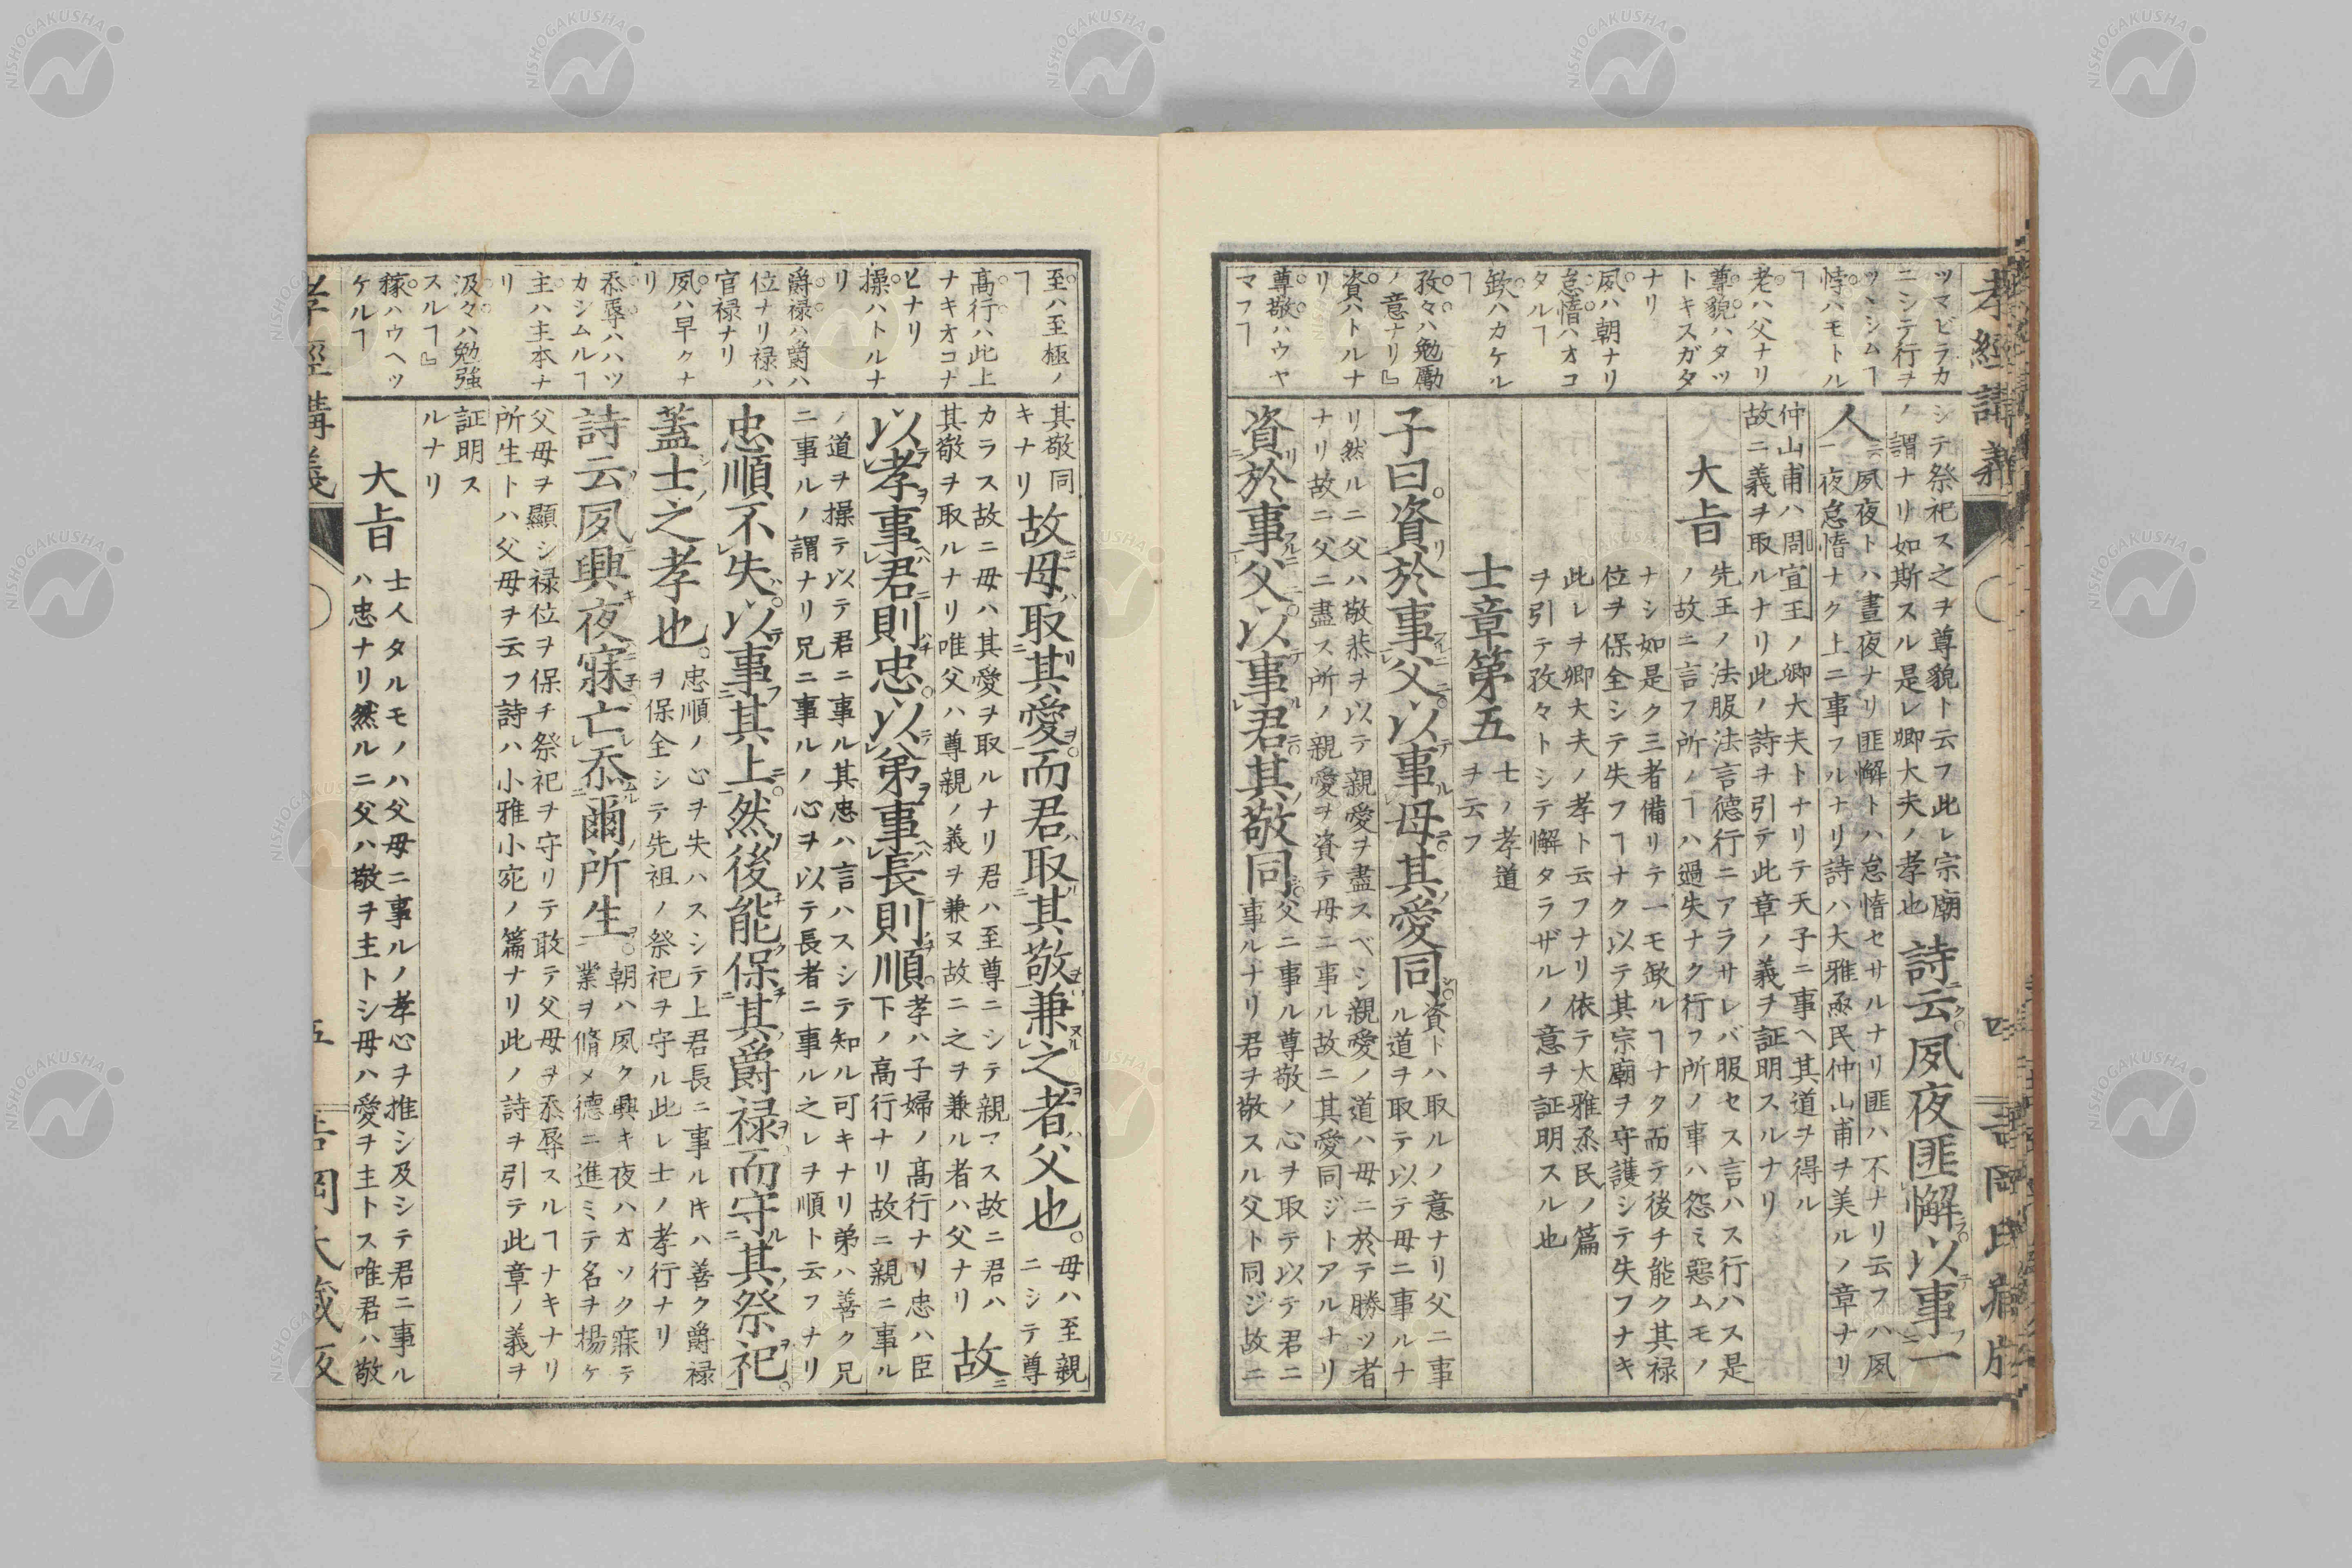 孝經講義
四
ツマビラカ
ニシテ行ヲ
ツヽシムヿ
悖ハモトル
ヿ
老ハ父ナリ
尊貌ハタツ
トキスガタ
ナリ
夙ハ朝ナリ
怠惰ハオコ
タルヿ
欽ハカケル
ヿ
孜々ハ勉勵
ノ意ナリ』
資ハトルナ
リ
尊敬ハウヤ
マフヿ
シテ祭祀ス之ヲ尊貌ト云フ此レ宗廟
ノ謂ナリ如斯スル是レ卿大夫ノ孝也
詩云夙夜匪懈以事一
人
夙夜トハ晝夜ナリ匪懈トハ怠惰セサルナリ匪ハ不ナリ云フハ夙
夜怠惰ナク上ニ事フルナリ詩ハ大雅烝民仲山甫ヲ美ルノ章ナリ
仲山甫ハ周宣王ノ卿大夫トナリテ天子ニ事ヘ其道ヲ得ル
故ニ義ヲ取ルナリ此ノ詩ヲ引テ此章ノ義ヲ証明スルナリ
大旨
先王ノ法服法言德行ニアラサレバ服セス言ハス行ハス是
ノ故ニ言フ所ノヿハ過失ナク行フ所ノ事ハ怨ミ惡ムモノ
ナシ如是ク三者備リテ一モ欽ルヿナク而テ後チ能ク其禄
位ヲ保全シテ失フヿナク以テ其宗廟ヲ守護シテ失フナキ
此レヲ卿大夫ノ孝ト云フナリ依テ大雅烝民ノ篇
ヲ引テ孜々トシテ懈タラザルノ意ヲ証明スル也
士章第五
士ノ孝道
ヲ云フ
子曰資於事父以事母其愛同
資トハ取ルノ意ナリ父ニ事
ル道ヲ取テ以テ母ニ事ルナ
リ然ルニ父ハ敬恭ヲ以テ親愛ヲ盡スベシ親愛ノ道ハ母ニ於テ勝ツ者
ナリ故ニ父ニ盡ス所ノ親愛ヲ資テ母ニ事ル故ニ其愛同ジトアルナリ
資於事父以事君其敬同
父ニ事ル尊敬ノ心ヲ取テ以テ君ニ
事ルナリ君ヲ敬スル父ト同ジ故ニ
至ハ至極ノ
ヿ
高行ハ此上
ナキオコナ
ヒナリ
操ハトルナ
リ
爵禄ハ爵ハ
位ナリ禄ハ
官禄ナリ
夙ハ早クナ
リ
忝辱ハハツ
カシムルヿ
主ハ主本ナ
リ
汲々ハ勉強
スルヿ』
稼ハウヘツ
ケルヿ
其敬同
キナリ
故母取其愛而君取其敬兼之者父也
母ハ至親
ニシテ尊
カラス故ニ母ハ其愛ヲ取ルナリ君ハ至尊ニシテ親マス故ニ君ハ
其敬ヲ取ルナリ唯父ハ尊親ノ義ヲ兼ヌ故ニ之ヲ兼ル者ハ父ナリ
故
以孝事君則忠以弟事長則順
孝ハ子婦ノ高行ナリ忠ハ臣
下ノ高行ナリ故ニ親ニ事ル
ノ道ヲ操テ以テ君ニ事ル其忠ハ言ハスシテ知ル可キナリ弟ハ善ク兄
ニ事ルノ謂ナリ兄ニ事ルノ心ヲ以テ長者ニ事ル之レヲ順ト云フナリ
忠順不失以事其上然後能保其爵禄而守其祭祀
蓋士之孝也
忠順ノ心ヲ失ハスシテ上君長ニ事ル片ハ善ク爵禄
ヲ保全シテ先祖ノ祭祀ヲ守ル此レ士ノ孝行ナリ
詩云夙興夜寐亡忝爾所生
朝ハ夙ク興キ夜ハオソク寐テ
業ヲ脩メ德ニ進ミテ名ヲ揚ケ
父母ヲ顯シ禄位ヲ保チ祭祀ヲ守リテ敢テ父母ヲ忝辱スルヿナキナリ
所生トハ父母ヲ云フ詩ハ小雅小宛ノ篇ナリ此ノ詩ヲ引テ此章ノ義ヲ
証明ス
ルナリ
大旨
士人タルモノハ父母ニ事ルノ孝心ヲ推シ及シテ君ニ事ル
ハ忠ナリ然ルニ父ハ敬ヲ主トシ母ハ愛ヲ主トス唯君ハ敬
孝經講義
五